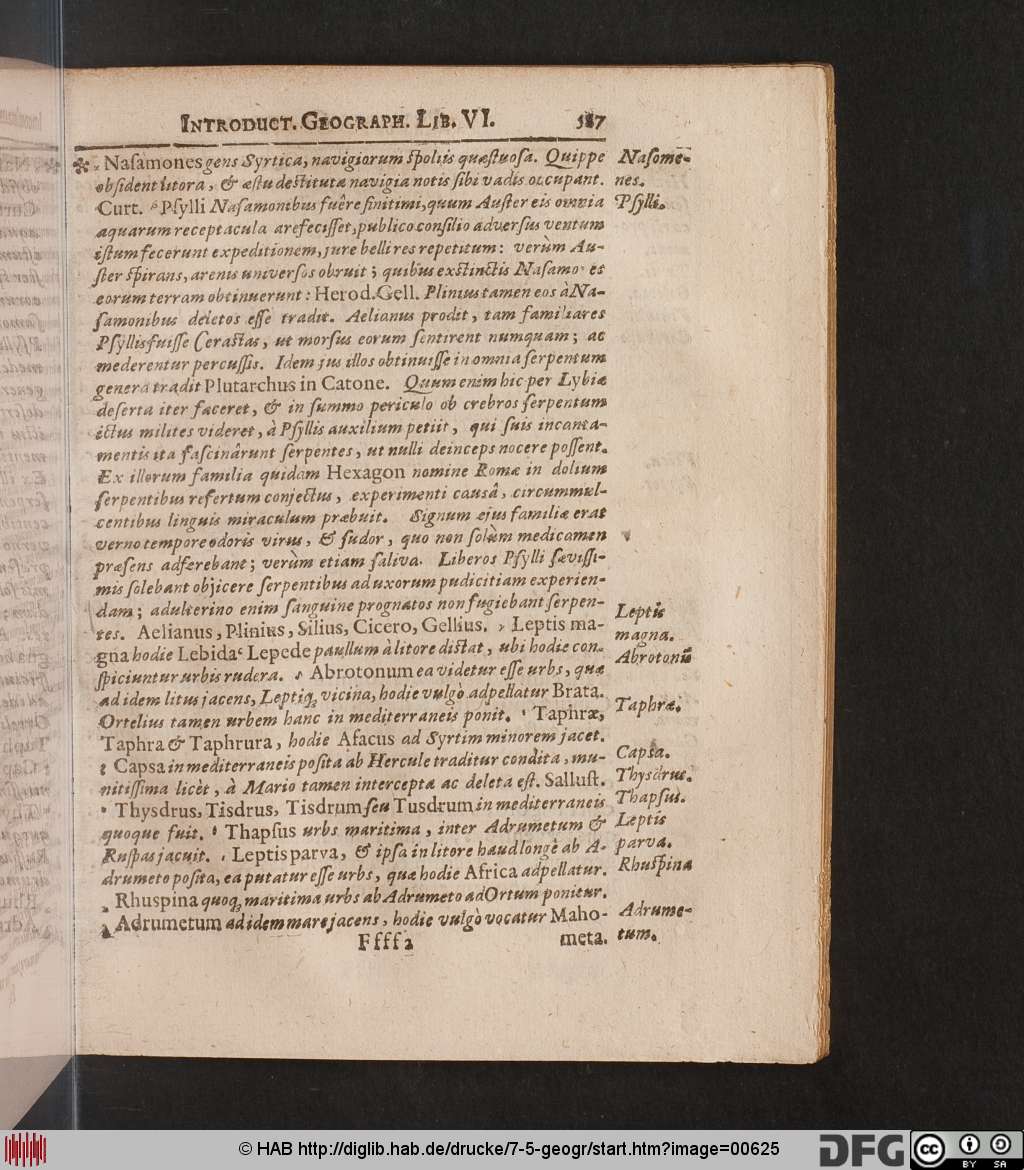 INTRODUCT. GEOGRAPH. LIB. VI. 587
Nasamones gens Syrtica, navigiorum spoliis quæstuosa. Quippe
obsident litora, & æstu destituta navigia notis sibi vadis occupant.
Curt. Psylli Nasamonibus fuêre finitimi, quum Auster eis omnia
aquarum receptacula arefecisset, publico consilio adversus ventum
istum fecerunt expeditionem, jure belli res repetitum: verùm Au-
ster spirans, arenis universos obruit; quibus exstinctis Nasamo es
eorum terram obtinuerunt: Herod. Gell. Plinius tamen eos à Na-
samonibus deletos esse tradit. Aelianus prodit, tam familiares
Psyllis fuisse Cerastas, ut morsus eorum sentirent numquam; ac
mederentur percussis. Idem jus illos obtinuisse in omnia serpentum
genera tradit Plutarchus in Catone. Quum enim hic per Lybiæ
deserta iter faceret, & in summo periculo ob crebros serpentum
ictus milites videret, à Psyllis auxilium petiit, qui suis incanta-
mentis ita fascinârunt serpentes, ut nulli deinceps nocere possent.
Ex illorum familia quidam Hexagon nomine Romæ in dolium
serpentibus refertum conjectus, experimenti causâ, circummul-
centibus linguis miraculum præbuit. Signum ejus familiæ erat
verno tempore odoris virus, & sudor, quo non solùm medicamen
præsens adferebant; verùm etiam saliva. Liberos Psylli sævissi-
mis solebant objicere serpentibus ad uxorum pudicitiam experien-
dam; adulterino enim sanguine prognatos non fugiebant serpen-
tes. Aelianus, Plinius, Silius, Cicero, Gellius. Leptis ma-
gna hodie Lebida Lepede paullum à litore distat, ubi hodie con-
spiciuntur urbis rudera. Abrotonum ea videtur esse urbs, quæ
ad idem litus jacens, Leptiq; vicina, hodie vulgò adpellatur Brata.
Ortelius tamen urbem hanc in mediterraneis ponit. Taphræ,
Taphra & Taphrura, hodie Afacus ad Syrtim minorem jacet.
Capsa in mediterraneis posita ab Hercule traditur condita, mu-
nitissima licèt, à Mario tamen intercepta ac deleta est. Sallust.
Thysdrus, Tisdrus, Tisdrum seu Tusdrum in mediterraneis
quoque fuit. Thapsus urbs maritima, inter Adrumetum &
Ruspas jacuit. Leptis parva, & ipsa in litore haud longè ab A-
drumeto posita, ea putatur esse urbs, quæ hodie Africa adpellatur.
Rhuspina quoq; maritima urbs ab Adrumeto ad Ortum ponitur.
Adrumetum ad idem mare jacens, hodie vulgò vocatur Maho-
Ffff 2 meta.
Nasome-
nes.
Psylli.
Leptis
magna.
Abrotonū
Taphræ.
Capsa.
Thysdrus.
Thapsus.
Leptis
parva.
Rhuspina
Adrume-
tum.
© HAB http://diglib.hab.de/drucke/7-5-geogr/start.htm?image=00625
DFG
cc BY SA